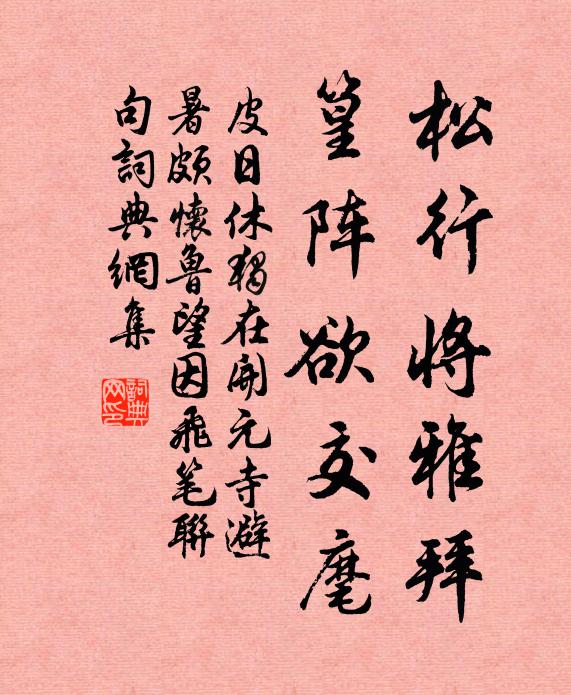 松行将雅拜
篁阵欲交麾
皮日休獨在開元寺避
暑頗懷魯望因飛笔聯
句詞典網集
詞典网印